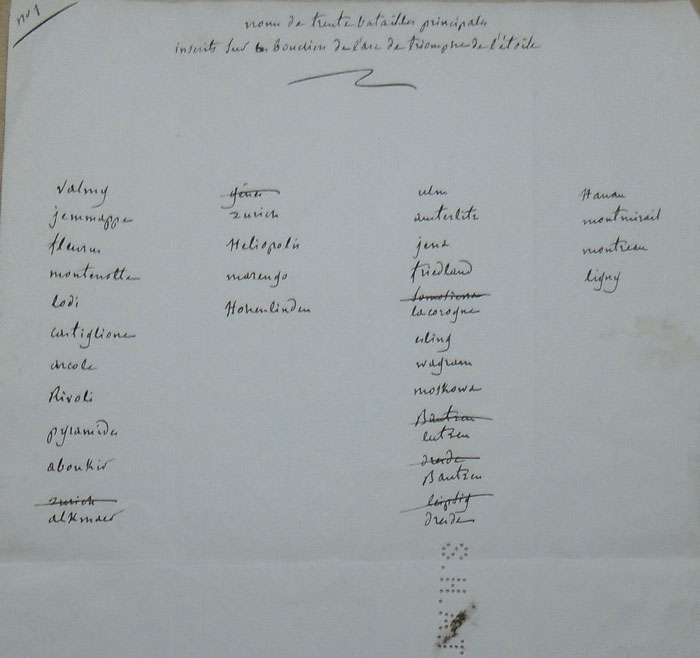 no 1
noms de trente batailles principales
inscrits sur les bouclier de l'arc de triomphe de l'étoile
valmy
jemmappe
fleurus
montenotte
lodi
castiglione
arcole
Rivoli
pyramides
aboukir
zurich
alkmaer
gênes
zurich
Héliopolis
marengo
Hohenlinden
ulm
austerlitz
jena
friedland
somosierra
la corogne
esling
wagram
moskowa
Bautzen
lutzen
dresde
Bautzen
leipsig
dresde
Hanau
montmirail
montreau
ligny